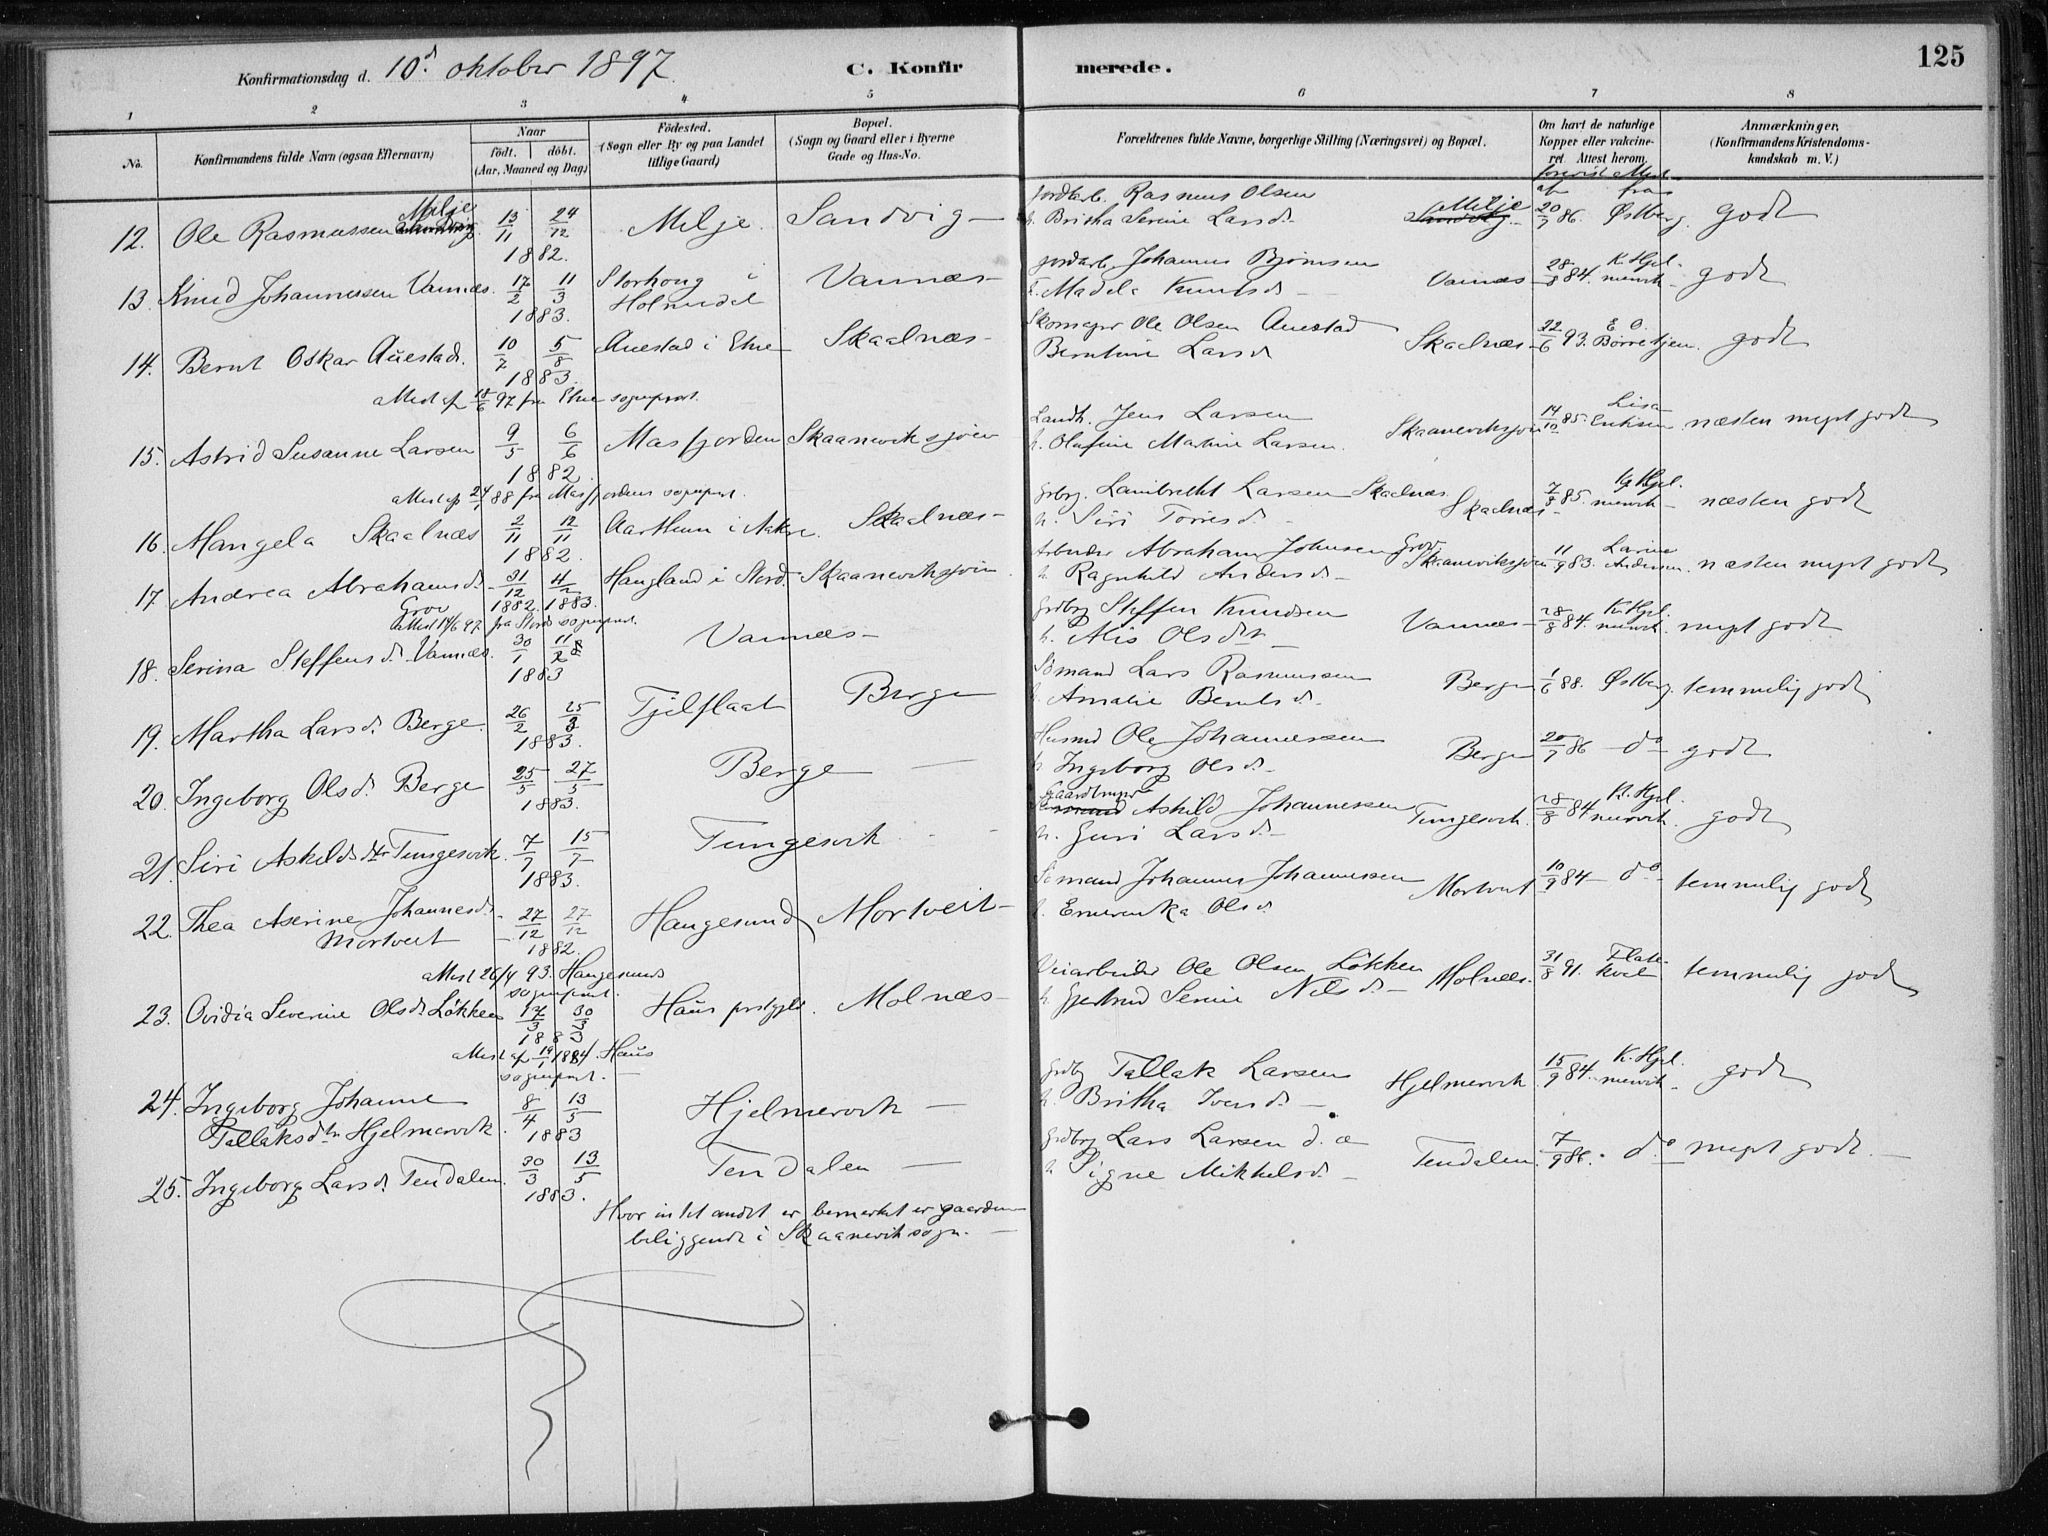 Konfirmationsdag d. 10d. oktober 1897. C. Konfirmerede. 125
1 2 3 4 5 6 7 8
No. Konfirmandens fulde Navn (ogsaa Efternavn) Naar födt. döbt. (Aar, Maaned og Dag.) Födested. (Sogn eller By og paa Landet tillige Gaard.) Bopæl. (Sogn og Gaard eller i Byerne Gade og Hus-No. Forældrenes fulde Navne, borgerlige Stilling (Næringsvei) og Bopæl. Om havt de naturlige Kopper eller vakcineret. Attest herom. Anmærkninger, (Konfirmandens Kristendomskundskab m. V.)
Milje
jordarb. Rasmus Olsen Milje
12. Ole Rasmussen 13/11 24/12 Milje. Sandvig — h. Britha Serine Larsd. 20/7 86. Østberg. godt
1882.
jordarb. Johannes Bjørnsen K. Hjel-
13. Knud Johannessen Vannæs. 17/2 11/3 Storhoug i Holmedal Vannæs — h. Madela Knutsd. — Vannæs — 28/8 84. mervik — godt
1883.
Skomager Ole Olsen Auestad E. O.
14. Bernt Oskar Auestad. 10/7 5/8 Auestad i Etne Skaalnæs — Berntine Larsd. Skaalnæs — 22/6 93. Børretzen. godt
1883.
Attest af 18/6 97 fra Etne sogneprest.
Landh. Jens Larsen Lisa
15. Astrid Susanne Larsen 9/5 6/6 Masfjorden Skaaneviksjøen h. Olufine Marine Larsen. Skaaneviksjøen 14/10 85. Eriksen. næsten meget godt
1882.
Attest af 24/1 88 fra Masfjordens sogneprest.
grbrg. Lambrecht Larsen Skaalnæs. Hjel-
16. Mangela Skaalnæs 2/11 12/11 Aarthun i Aakre. Skaalnæs — h. Siri Torresd. — Skaalnæs — 7/8 85. mervik — næsten godt
1882.
Arbeider Abraham Johnsen Grov Larine
17. Andrea Abrahamsd. 31/12 4/2 Haugland i Stord. Skaaneviksjøen. h. Ragnhild Andersd. — Skaaneviksjøen 11/9 83. Andersen. næsten meget godt
Grov 1882. 1883.
Attest 14/6 97. fra Stords sogneprest.
grdbrg Steffen Knudsen K. Hjel.
18. Serina Steffensd. Vannæs. 30/1 11/2 Vannæs — h. Alis Olsdtr Vannæs — 28/8 84. mervik. meget godt
1883
Sömand Lars Rasmussen
19. Martha Larsd. Berge. 26/2 25/3 Tjelflaat Berge h. Amalie Berntsd. Berge 1/6 88. Østberg. temmelig godt
1883.
Husmd Ole Johannessen
20. Ingeborg Olsd. Berge 25/5 27/5 Berge — h. Ingeborg Olsd. — Berge 20/7 86 — do — godt
1883.
Gaardbruger Askild Johannessen K. Hjel.
21. Siri Askilds dtr Tungesvik. 7/7 15/7 Tungesvik h. Guri Larsd. — Tungesvik. 28/8 84 mervik. godt
1883.
Sömand Johannes Johannessen
22. Thea Aserine Johannesd. Mortveit 27/12 27/12 Haugesund Mortveit — h. Emerenka Olsd. Mortveit 10/9 84 — do — temmelig godt
1882.
Attest 26/4 93. Haugesunds sogneprest.
Veiarbeider Ole Olsen Løkken Flate-
23. Ovidia Severine Olsd. Løkken 17/3 30/3 Haus prstgjld. Molnæs — h. Gjertrud Serine Nilsd. — Molnæs. 31/8 91. kval temmelig godt
1883
Attest af 19/1 1884. Haus sogneprest. —
grdbrg Tallak Larsen K. Hjel.
24. Ingeborg Johanne Tallaksdtr Hjelmervik. 8/4 13/5 Hjelmervik — h. Britha Iversd. — Hjelmervik. 15/9 84. mervik — godt
1883
grdbrg Lars Larsen d. æ
25. Ingeborg Larsd. Tendalen. 30/3 13/5 Tendalen — h. Signe Mikkelsd. — Tendalen. 7/9 86. do meget godt. —
1883.
Hvor intet andet er bemerket er gaardene
beliggende i Skaanevik sogn. —